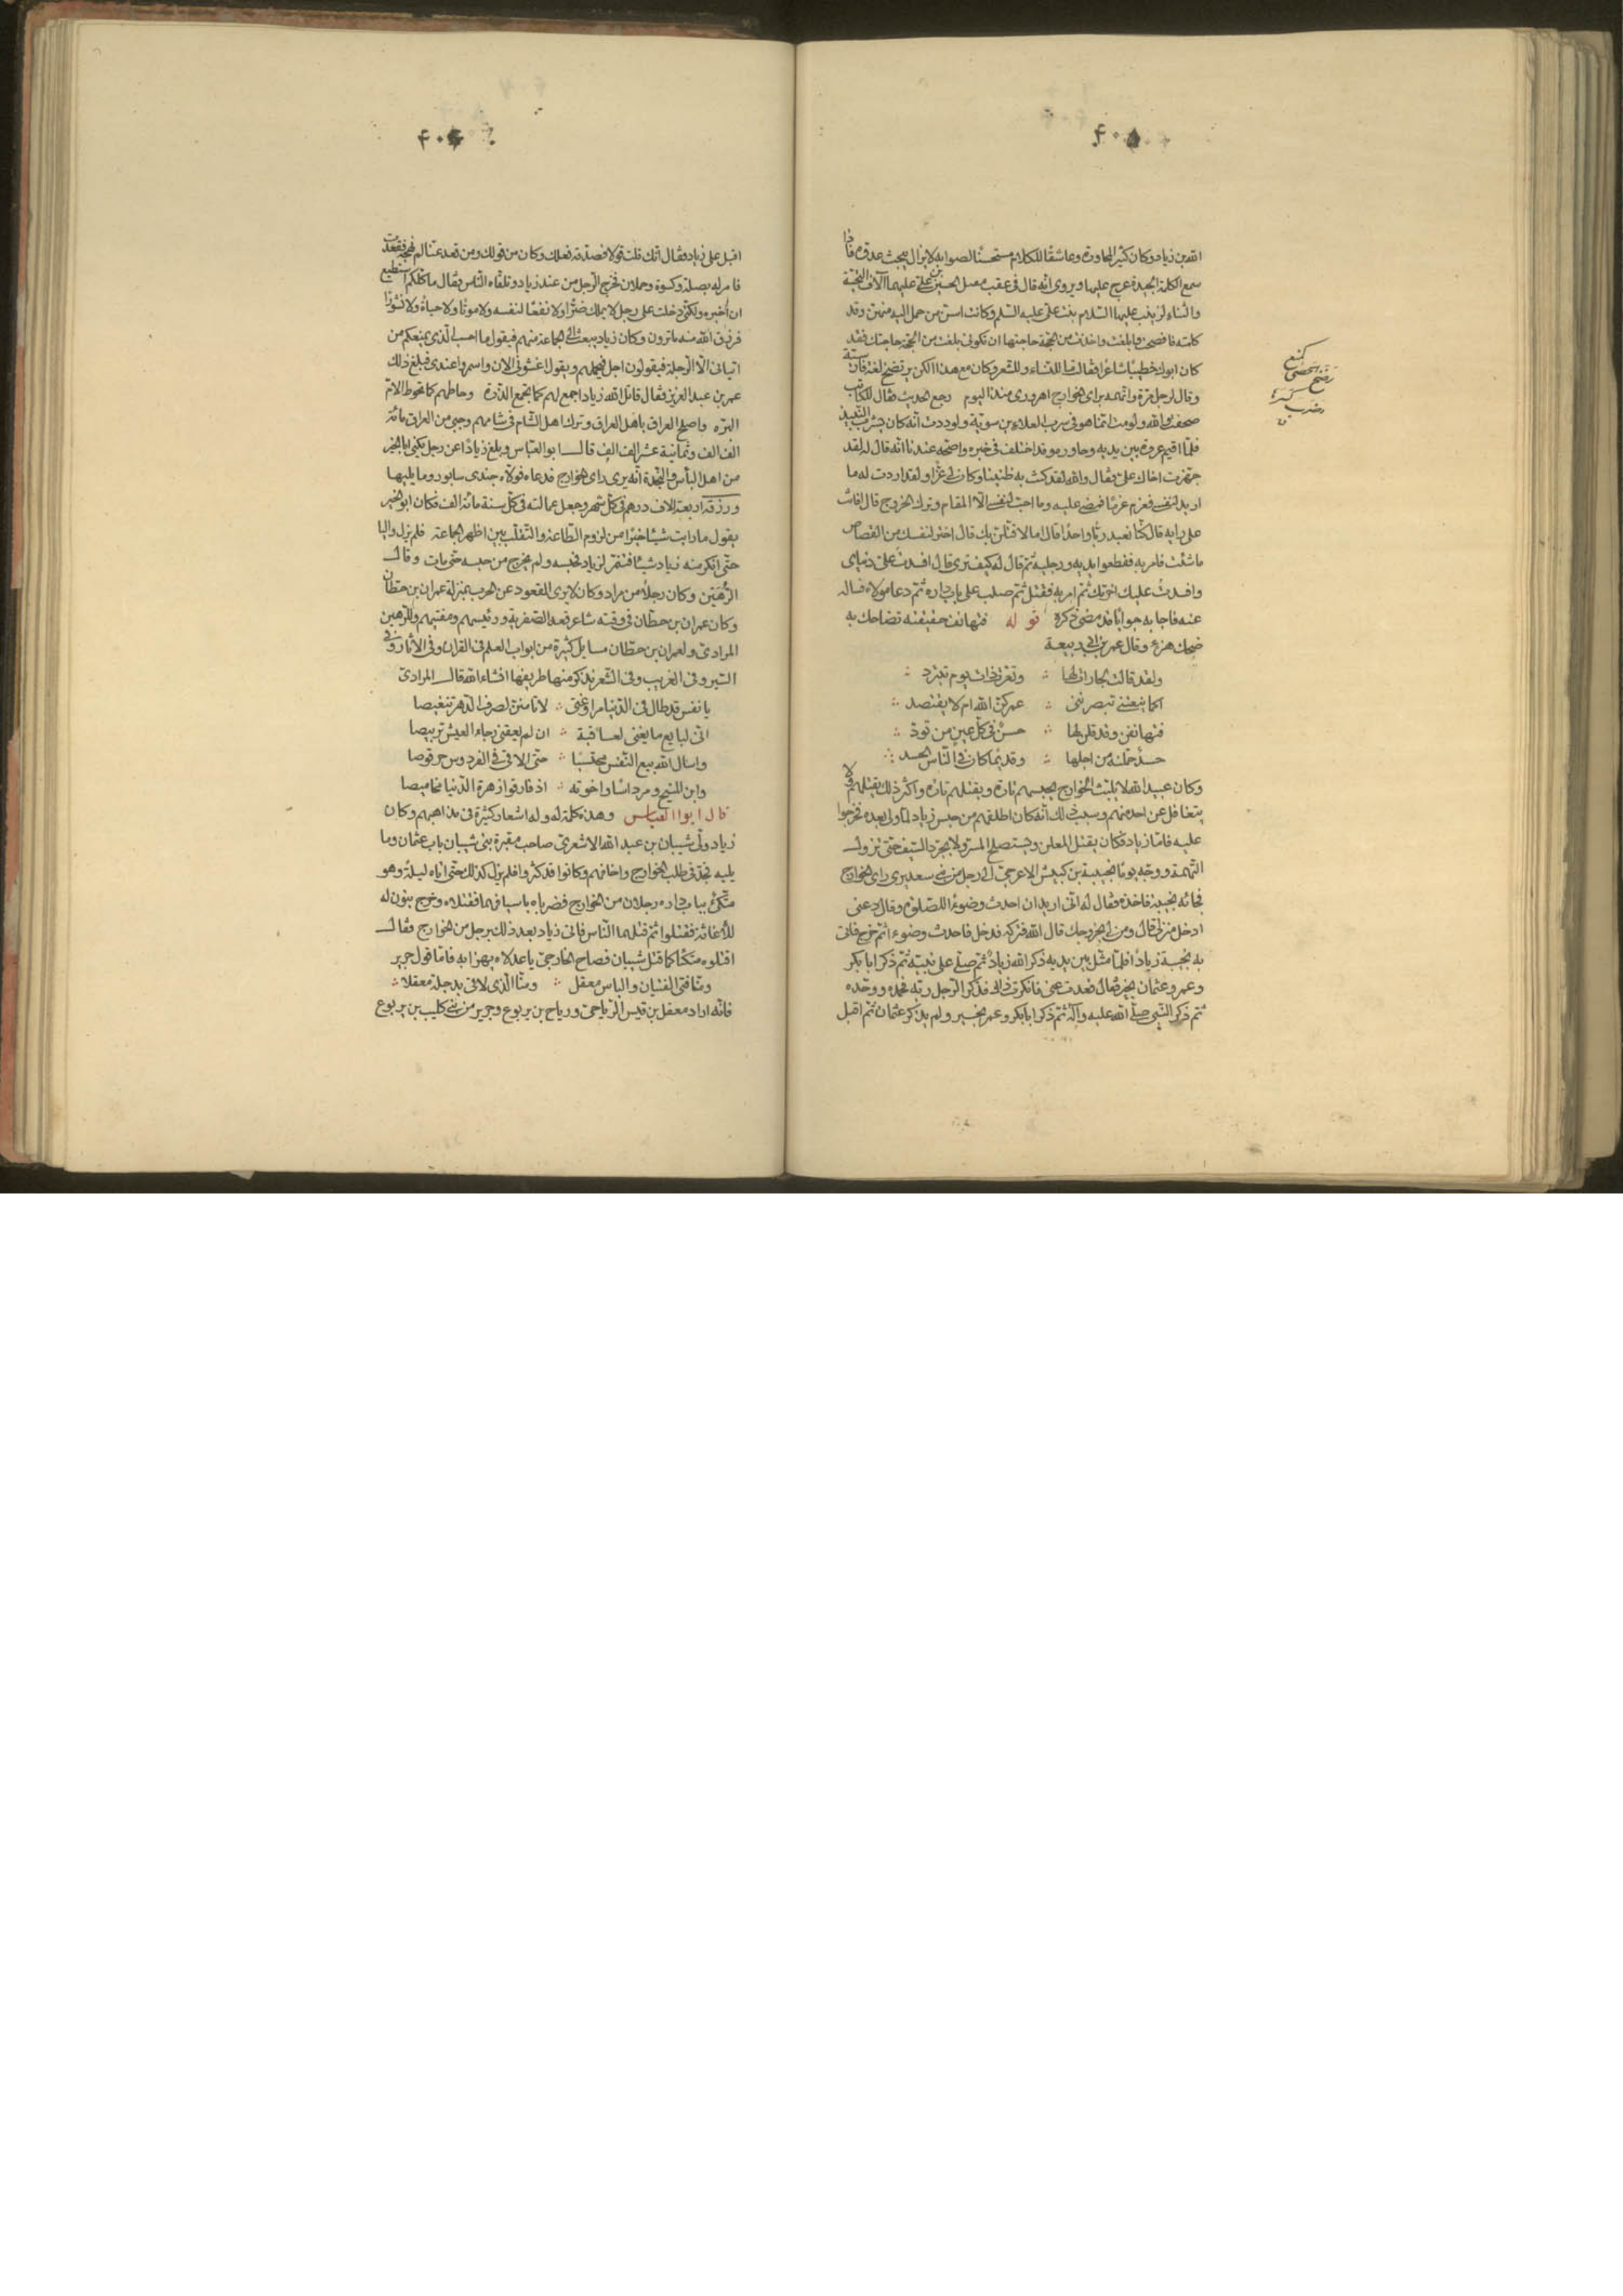 ۴۰۵
الله بن زياد وكان كثير المحاورة وعاشقا للكلام مستحسنا للصواب لا يزال يبحث عن عذره فاذا
سمع الكلمة الجيدة عرج عليها ويروى انه قال في عقب مقتل الحسين بن علي عليهما آلاف التحية
والثناء لزينب عليها السلام بنت علي عليه السلم وكانت اسن من حمل اليه منهن وقد
كلمته فافصحت وابلغت واخذت من الحجة حاجتها ان تكوني بلغت من الحجة حاجتك فقد
كان ابوك خطيبا شاعرا فقالت ما للنساء وللشعر وكان مع هذا الكن يرتضخ لغة فارسية
وقال لرجل مرة واتهمه براى الخوارج اهرورى منذ اليوم رجع الحديث فقال للكاتب
صحفت والله ولومت انما هو في سرب العلاء بن سوية ولوددت انه كان يشرب النبيذ
فلما اقيم عروة بين يديه وحاوره وقد اختلف في خبره واصحه عندنا انه قال له لقد
جهزت اخاك علي فقال والله لقد كنت به ظنينا وكان لي عزا ولقد اردت له ما
اريد لنفسي فعزم عزما فمضى عليه وما احب لنفسي الا المقام وترك الخروج قال افانت
على رايه قال كنا نعبد ربا واحدا قال اما لامثلن بك قال اختر لنفسك من القصاص
ما شئت فامر به فقطعوا يديه ورجليه ثم قال له كيف ترى قال افسدت علي دنياى
وافسدت عليك اخرتك ثم امر به فقتل ثم صلب على باب داره ثم دعا مولاه فساله
عنه فاجابه جوابا قد مضى ذكره قوله فتهانفن حقيقته تضاحك به
ضحك هزء وقال عمر بن ابي ربيعة
ولقد قالت لجارات لها ∴ وتعرت ذات يوم تبترد ∴
اكما ينعتني تبصرنني ∴ عمركن الله ام لا يقتصد ∴
فتهانفن وقد قلن لها ∴ حسن في كل عين من تود ∴
حسد حملنه من اجلها ∴ وقديما كان في الناس الحسد ∴
وكان عبيد الله لا يلبث الخوارج يحبسهم تارة ويقتلهم تارة واكثر ذلك يقتلهم ولا
يتغافل عن احد منهم وسبب ذلك انه كان اطلقهم من حبس زياد لما ولي بعده فخرجوا
عليه فاما زياد فكان يقتل المعلن ويستصلح المسر ولا يجرد السيف حتى تزول
التهمة ووجه يوما بحيبة بن كبيش الاعرجي الى رجل من بني سعد يرى راى الخوارج
فجائه بحيبة فاخذه فقال له اني اريد ان احدث وضوءا للصلوة وقال دعني
ادخل منزلي قال ومن لي بخروجك قال الله فتركه فدخل فاحدث وضوءا ثم خرج فاتى
به بحيبة زيادا فلما مثل بين يديه ذكر الله زياد ثم صلى على نبيه ثم ذكر ابا بكر
وعمر وعثمان بخير ثم قال قعدت عني فانكرت ذلك فذكر الرجل ربه فحمده ووحده
ثم ذكر النبي صلى الله عليه وآله ثم ذكر ابا بكر وعمر بخير ولم يذكر عثمان ثم اقبل
۴۰۶
اقبل على زياد فقال انك قلت قولا فصدقه فعلك وكان من قولك ومن قعد عنا لم نهجه فقعدت
فامر له بصلة وكسوة وحملان فخرج الرجل من عند زياد وتلقاه الناس فقال ما كلكم استطيع
ان اخبره ولكني دخلت على رجل لا يملك ضرا ولا نفعا لنفسه ولا موتا ولا حياة ولا نشورا
فرزق الله منه ما ترون وكان زياد يبعث الى الجماعة منهم فيقول ما احسب الذي يمنعكم من
اتياني الا الرجلة فيقولون اجل فيحملهم ويقول اغشوني الان واسمروا عندي فبلغ ذلك
عمر بن عبد العزيز فقال قاتل الله زيادا جمع لهم كما تجمع الذرة وحاطهم كما تحوط الام
البرة واصلح العراق باهل العراق وترك اهل الشام في شامهم وجبى من العراق مائة
الف الف وثمانية عشر الف الف قال ابو العباس وبلغ زيادا عن رجل يكنى ابا الخير
من اهل البأس والنجدة انه يرى راى الخوارج فدعاه فولاه جندي سابور وما يليها
ورزقه اربعة الاف درهم في كل شهر وجعل عمالته في كل سنة مائة الف فكان ابو الخير
يقول ما رايت شيئا خيرا من لزوم الطاعة والتقلب بين اظهر الجماعة فلم يزل واليا
حتى انكر منه زياد شيئا فتنمر لزياد فحبسه ولم يخرج من حبسه حتى مات وقال
الرهين وكان رجلا من مراد وكان لا يرى القعود عن الحرب بمنزلة عمران بن حطان
وكان عمران بن حطان في وقته شاعر قعد الصفرية ورئيسهم ومفتيهم وللرهين
المرادي ولعمران بن حطان مسايل كثيرة من ابواب العلم في القران وفي الآثار وفي
السير وفي الغريب وفي الشعر نذكر منها طريفها انشاء الله قال المرادي
يا نفس قد طال في الدنيا مراوغتي ∴ لا تامنن لصرف الدهر تنغيصا
اني لبايع ما يفنى لعاقبة ∴ ان لم يعقني رجاء العيش تربيصا
واسال الله بيع النفس محتسبا ∴ حتى الاقي في الفردوس حرقوصا
وابن المنيح ومرداسا واخوته ∴ اذ فارقوا زهرة الدنيا مخاميصا
قال ابوا العباس وهذه كلمة له وله اشعار كثيرة في مذاهبهم وكان
زياد ولى شيبان بن عبد الله الاشعري صاحب مقبرة بني شيبان باب عثمان وما
يليه فجد في طلب الخوارج واخافهم وكانوا قد كثروا فلم يزل كذلك حتى اتاه ليلة وهو
متكئ بباب داره رجلان من الخوارج فضرباه باسيافهما فقتلاه وخرج بنون له
للاغاثة فقتلوا ثم قتلهما الناس فاتى زياد بعد ذلك برجل من الخوارج فقال
اقتلوه متكئا كما قتل شيبان فصاح الخارجي يا عدلاه يهزا به فاما قول جرير
ومنا فتى الفتيان والباس معقل ∴ ومنا الذي لاقى بدجلة معقلا ∴
فانه اراد معقل بن قيس الرياحي ورياح بن يربوع وجرير من بني كليب بن يربوع